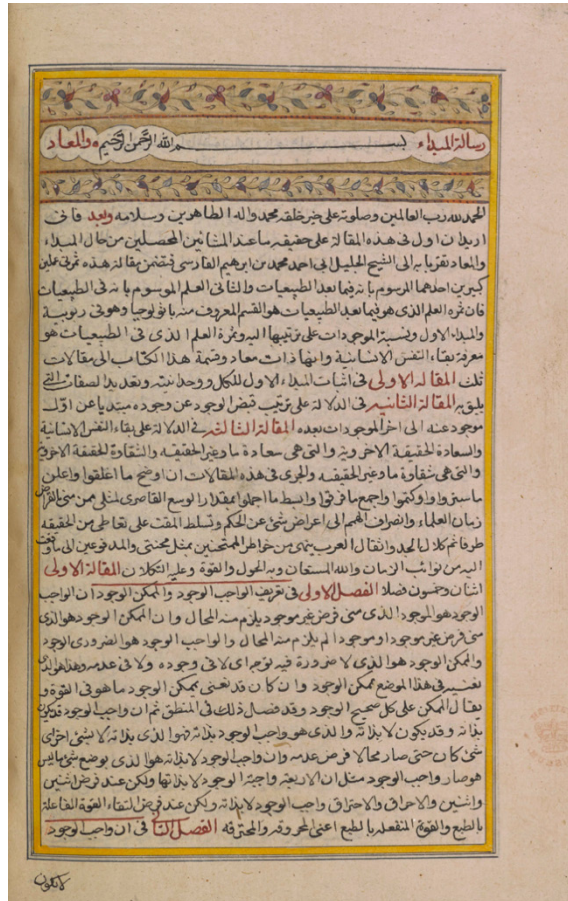 رسالة المبداء بسم الله الرحمن الرحيم والمعاد
الحمد لله رب العالمين وصلوته على خير خلقه محمد واله الطاهرين وسلامه وبعد فانى
اريد ان ادل فى هذه المقالة على حقيقه ما عند المشائين المحصلين من حال المبداء
والمعاد تقربا به الى الشيخ الجليل ابى احمد محمد بن ابرهيم الفارسى فتضمن مقالة هذه ثمرتى علمين
كبيرين احدهما الموسوم بانه فيما بعد الطبيعيات والثانى العلم الموسوم بانه فى الطبيعيات
فان ثمره العلم الذى هو فيما بعد الطبيعيات هو القسم المعروف منه باثولوجيا وهو فى ربوبية
والمبداء الاول ونسبة الموجودات على ترتيبها اليه وثمرة العلم الذى فى الطبيعيات هو
معرفة بقاء النفس الانسانية وانها ذات معاد وقسمة هذا الكتاب الى مقالات
ثلث المقالة الاولى فى اثبات المبداء الاول للكل ووحدانيته وتعديد الصفات التى
يليق به المقالة الثانيه فى الدلالة على ترتيب فيض الوجود عن وجوده مبتديا عن اول
موجود عنه الى اخر الموجودات بعده المقالة الثالثه فى الدلالة على بقاء النفس الانسانية
والسعادة الحقيقة الاخروية والتى هى سعادة ما وغير الحقيقه والشقاوة الحقيقة الاخروية
والتى هى شقاوة ما وغير الحقيقه والجرى فى هذه المقالات ان اوضح ما اغلقوا واعلن
ما ستروا وكتموا واجمع ما فرقوا وابسط ما اجملوا بمقدار الوسع القاصر لمثلى ممن منى بانقراض
زمان العلماء وانصراف الهمم الى اعراض شتى عن الحكم وتسلط المقت على تعاطى من الحقيقه
طرفا ثم كلال الحد وانفلال الغرب منى من خواطر الممتحنين بمثل محنتى والمدفوعين الى ما دفعت
اليه من نوائب الزمان والله المستعان وبه الحول والقوة وعليه التكلان المقالة الاولى
اثنان وخمسون فصلا الفصل الاولى فى تعريف الواجب الوجود والممكن الوجود ان الواجب
الوجود هو الموجود الذى متى فرض غير موجود يلزم منه المحال وان الممكن الوجود هو الذى
متى فرض غير موجود او موجودا لم يلزم منه المحال والواجب الوجود هو الضرورى الوجود
والممكن الوجود هو الذى لا ضرورة فيه بوجه اى لا فى وجوده ولا فى عدمه وهذا هو الذى
نعنيه فى هذا الموضع بممكن الوجود وان كان قد نعنى بممكن الوجود ما هو فى القوة و
يقال الممكن على كل صحيح الوجود وقد فصل ذلك فى المنطق ثم ان واجب الوجود قد يكون
بذاته وقد يكون لا بذاته والذى هو واجب الوجود بذاته فهو الذى بذاته لا بشئ اخر اى
شئ كان حتى صار محالا فرض عدمه وان واجب الوجود لا بذاته هو الذى بوضع شئ ما ليس
هو صار واجب الوجود مثل ان الاربعة واجبة الوجود لا بذاتها ولكن عند فرض اثنين
واثنين والاحراق والاحتراق واجب الوجود لا بذاته ولكن عند فرض التقاء القوة الفاعلة
بالطبع والقوة المنفعله بالطبع اعنى المحرقه والمحترقه الفصل الثانى فى ان واجب الوجود
لا يكون